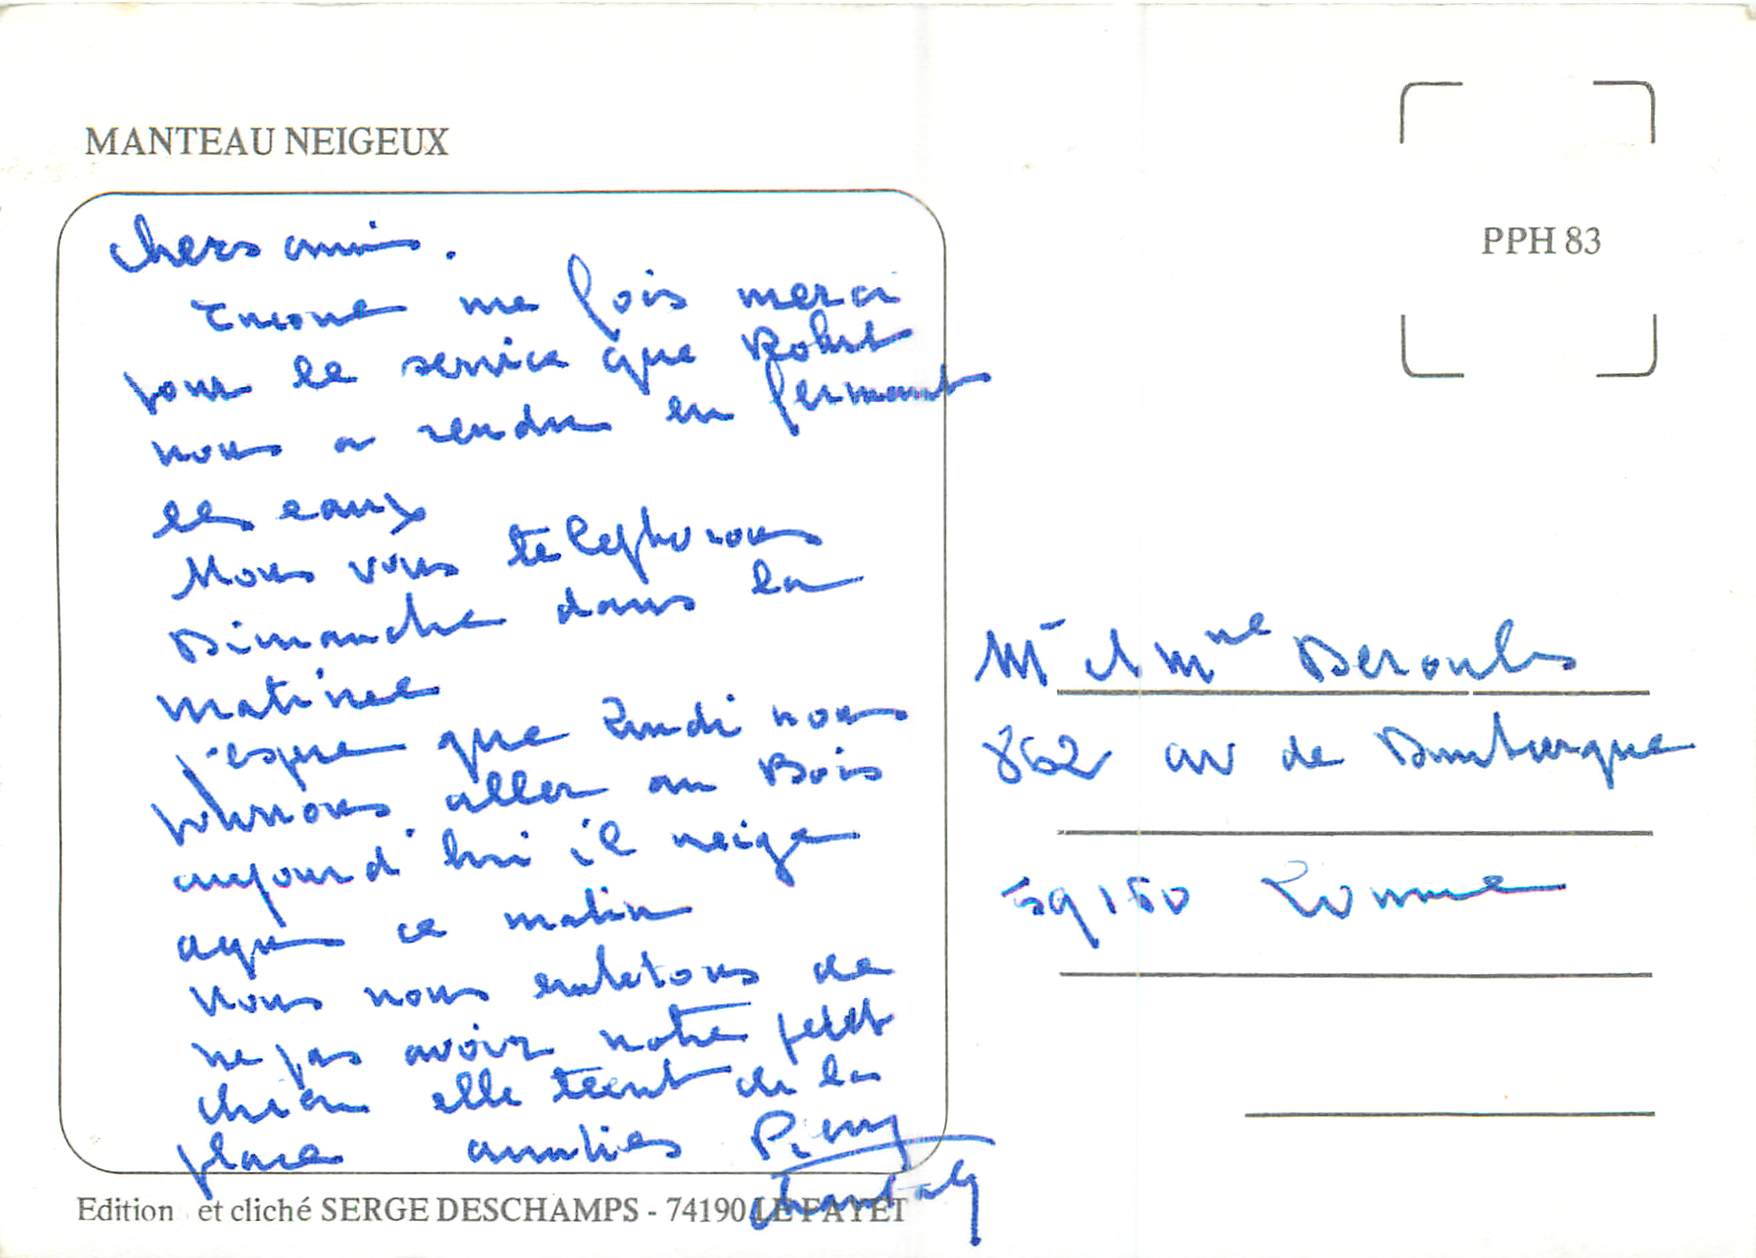 MANTEAU NEIGEUX
PPH 83
Chers amis.
Encore une fois merci
pour le service que Robert
nous a rendu en fermant
les eaux
Nous vous téléphonons
Dimanche dans la
matinée
j'espere que lundi nous
pourrons aller au Bois
aujourd'hui il neige
ce matin
Nous nous de
ne pas avoir notre petit
chien elle tient de la
place amitiés Remy
Chantal
Mr et Mme
862 av de Dunkerque
59160 Lomme
Edition et cliché SERGE DESCHAMPS - 74190 LE FAYET